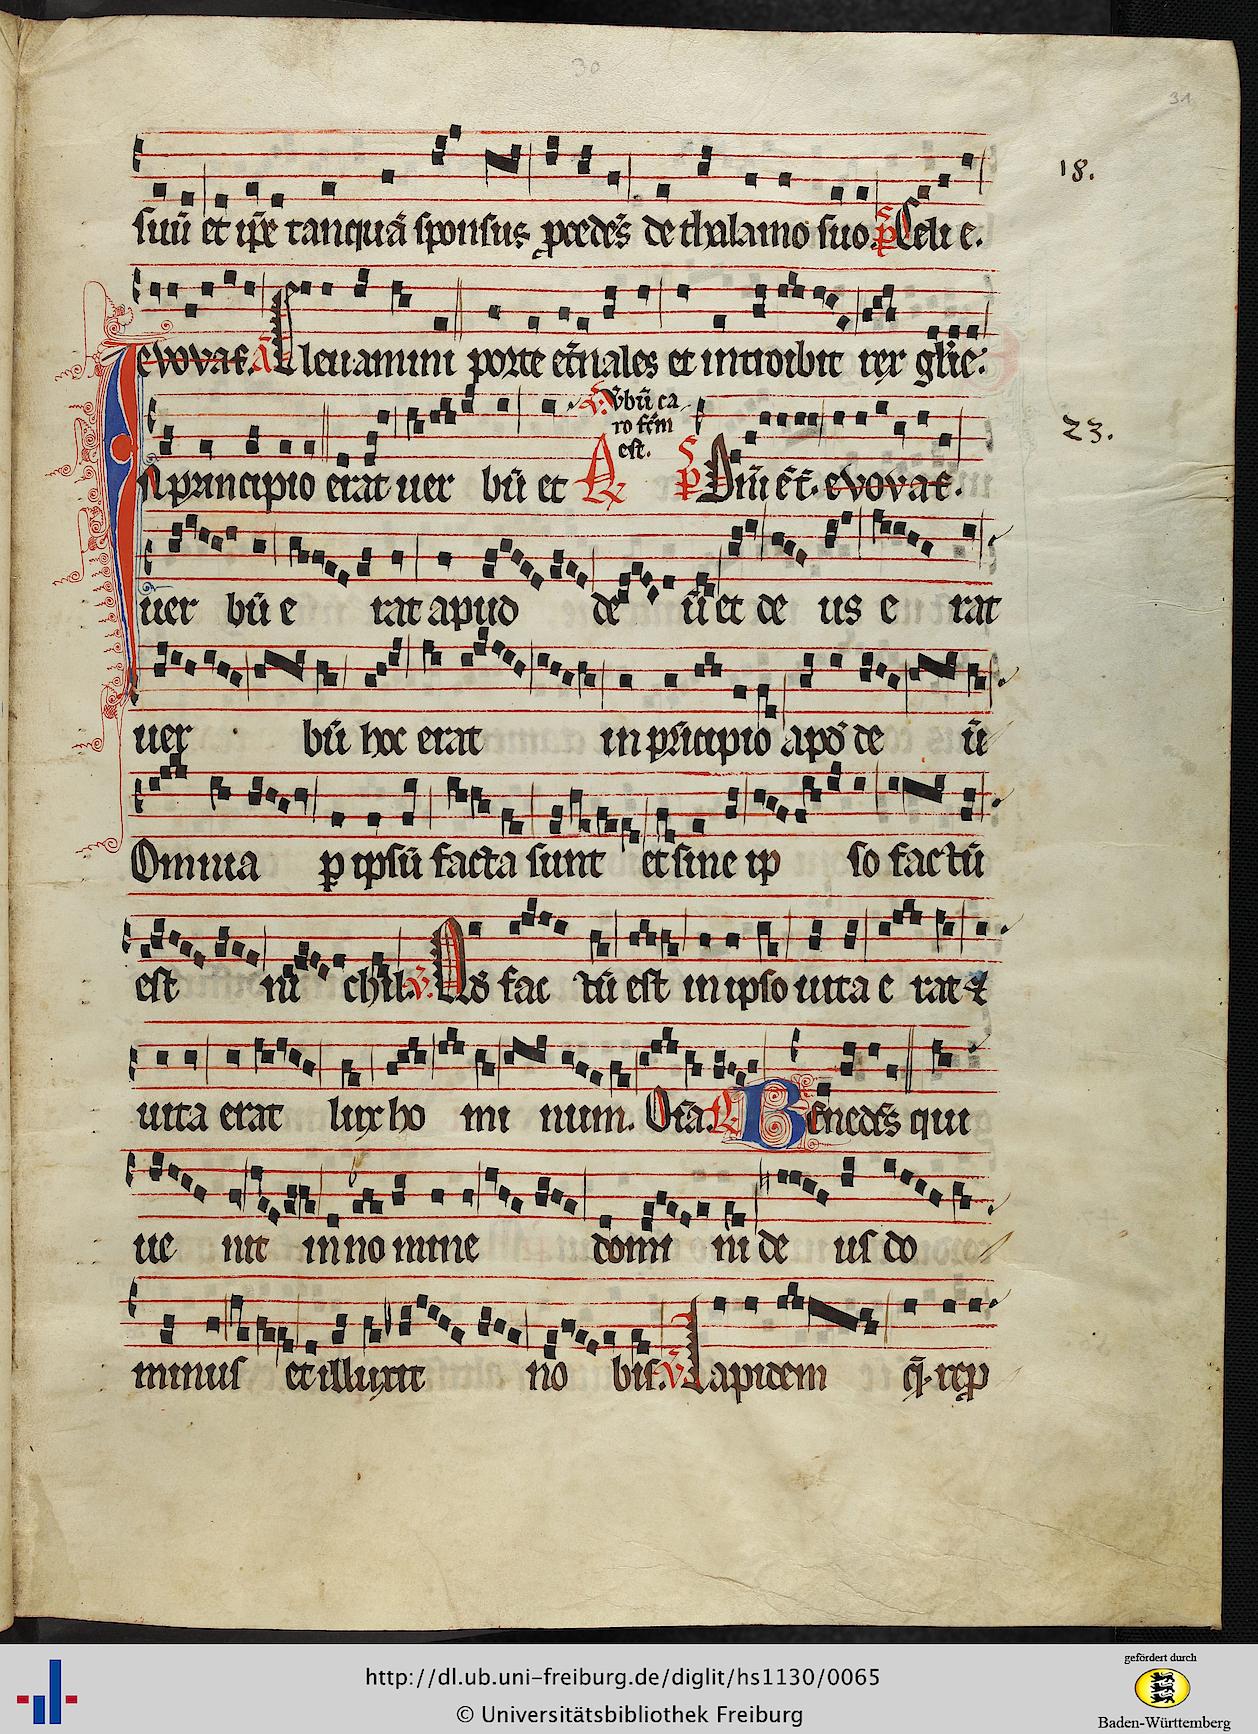 30
31
suū et ip̄e tanquā sponsus p̱cedēs de thalamo suo. p̄s Celi e.
18.
evovae. ā Eleuamini porte et̄nales et introibit rex gl̄ie.
v̄. v̄bū ca
ro fc̄m
est.
IN principio erat uer bū et R p̄s Dn̄i ē t̄. evovae.
23.
uer bū e rat apud de ū et de us e rat
uer bū hoc erat in pͥncipio apd̄ de ū
Omnia p̱ ipsū facta sunt et sine ip so factū
est ni chil. v̄. Qd̄ fac tū est in ipso uita e rat &
uita erat lux ho mi num. Oīa. R Benedc̄s qui
ue nit in no mine domi ni de us do
minus et illuxit no bis. v̄ Lapidem q̄ rep̱
http://dl.ub.uni-freiburg.de/diglit/hs1130/0065
© Universitätsbibliothek Freiburg
gefördert durch
Baden-Württemberg